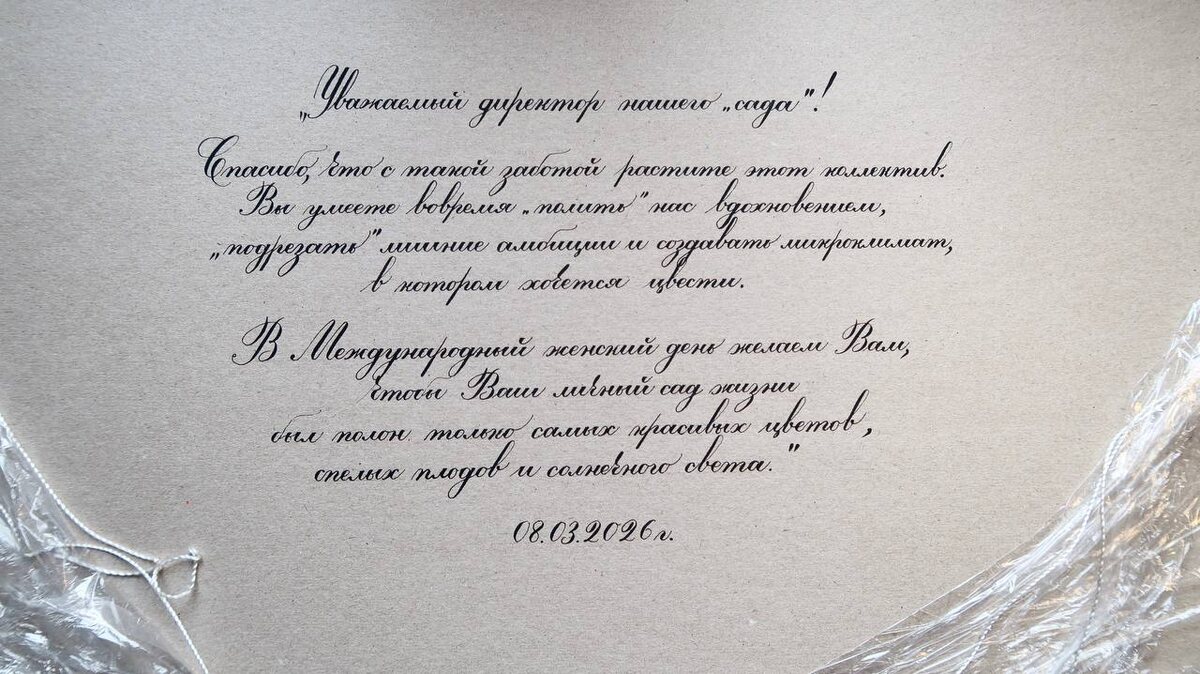 „Уважаемый директор нашего „сада"!
Спасибо, что с такой заботой растите этот коллектив.
Вы умеете вовремя „полить" нас вдохновением,
„подрезать" лишние амбиции и создавать микроклимат,
в котором хочется цвести.
В Международный женский день желаем Вам,
чтобы Ваш личный сад жизни
был полон только самых красивых цветов,
спелых плодов и солнечного света."
08.03.2026г.